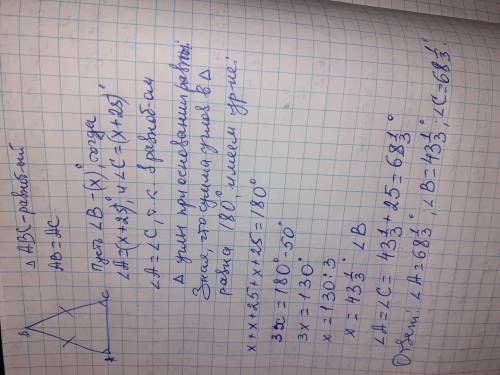 △ ABC - равноб-ый
AB = AC
B
A
C
Пусть ∠B - (x)°, тогда
∠A = (x+25)°, и ∠C = (x+25)°
∠A = ∠C, т.к. в равноб-ом
△ углы при основании равны.
Зная, что сумма углов в △
равна 180°, имеем ур-ие:
x+x+25+x+25=180°
3x = 180° - 50°
3x = 130°
x = 130 : 3
x = 43 1/3° ∠B
∠A = ∠C = 43 1/3 + 25 = 68 1/3°
Ответ: ∠A = 68 1/3°; ∠B = 43 1/3°; ∠C = 68 1/3°